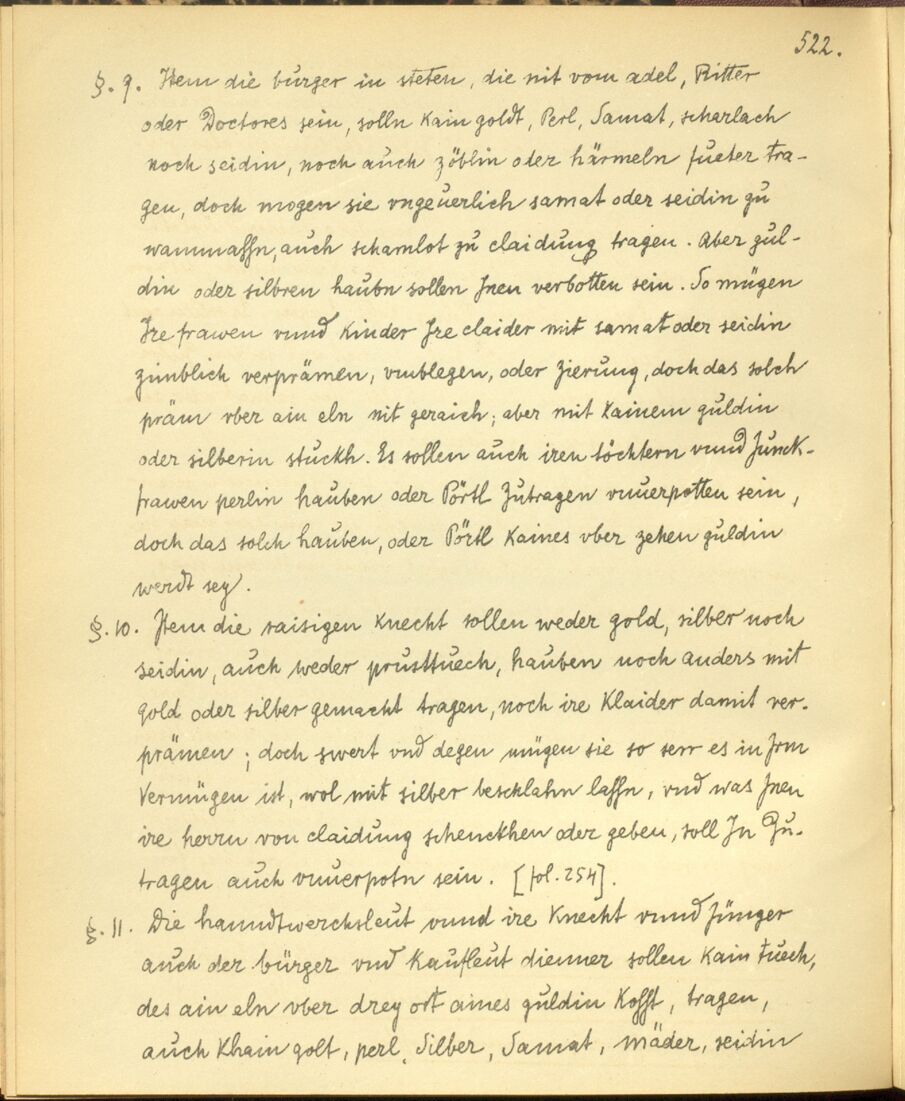 522.
§. 9. Item die bürger in steten, die nit vom adel, Ritter
oder Doctores sein, solln kain goldt, Perl, Samat, scharlach
noch seidin, noch auch zöblin oder härmeln fueter tra-
gen, doch mogen sie vngeuerlich samat oder seidin zu
wammassn, auch schamlot zu claidung tragen. Aber gul-
din oder silbren haubn sollen Jnen verbotten sein. So mügen
Jre frawen vnnd kinder Jre claider mit samat oder seidin
zimblich verprämen, vmblegen, oder Zierung, doch das solch
präm vber ain eln nit geraich; aber mit kainem guldin
oder silberin stuckh. Es sollen auch iren töchtern vnnd Junck-
frawen perlin hauben oder Pörtl Zutragen vnuerpotten sein,
doch das solch hauben, oder Pörtl kaines vber zehen guldin
werdt sey.
§. 10. Item die raisigen knecht sollen weder gold, silber noch
seidin, auch weder prusttuech, hauben noch anders mit
gold oder silber gemacht tragen, noch ire klaider damit ver-
prämen; doch swert vnd degen mügen sie so serr es in Jrm
Vermügen ist, wol mit silber beschlahn lassn, vnd was Jnen
ire herrn von claidung schenckhen oder geben, soll Jn Zu-
tragen auch vnuerpotn sein. [fol. 254].
§. 11. Die hanndtwerchsleut vnnd ire knecht vnnd Jünger
auch der bürger vnd kaufleut dienner sollen kain tuech,
des ain eln vber drey ort aines guldin kosst, tragen,
auch khain golt, perl, Silber, Samat, Mäder, seidin